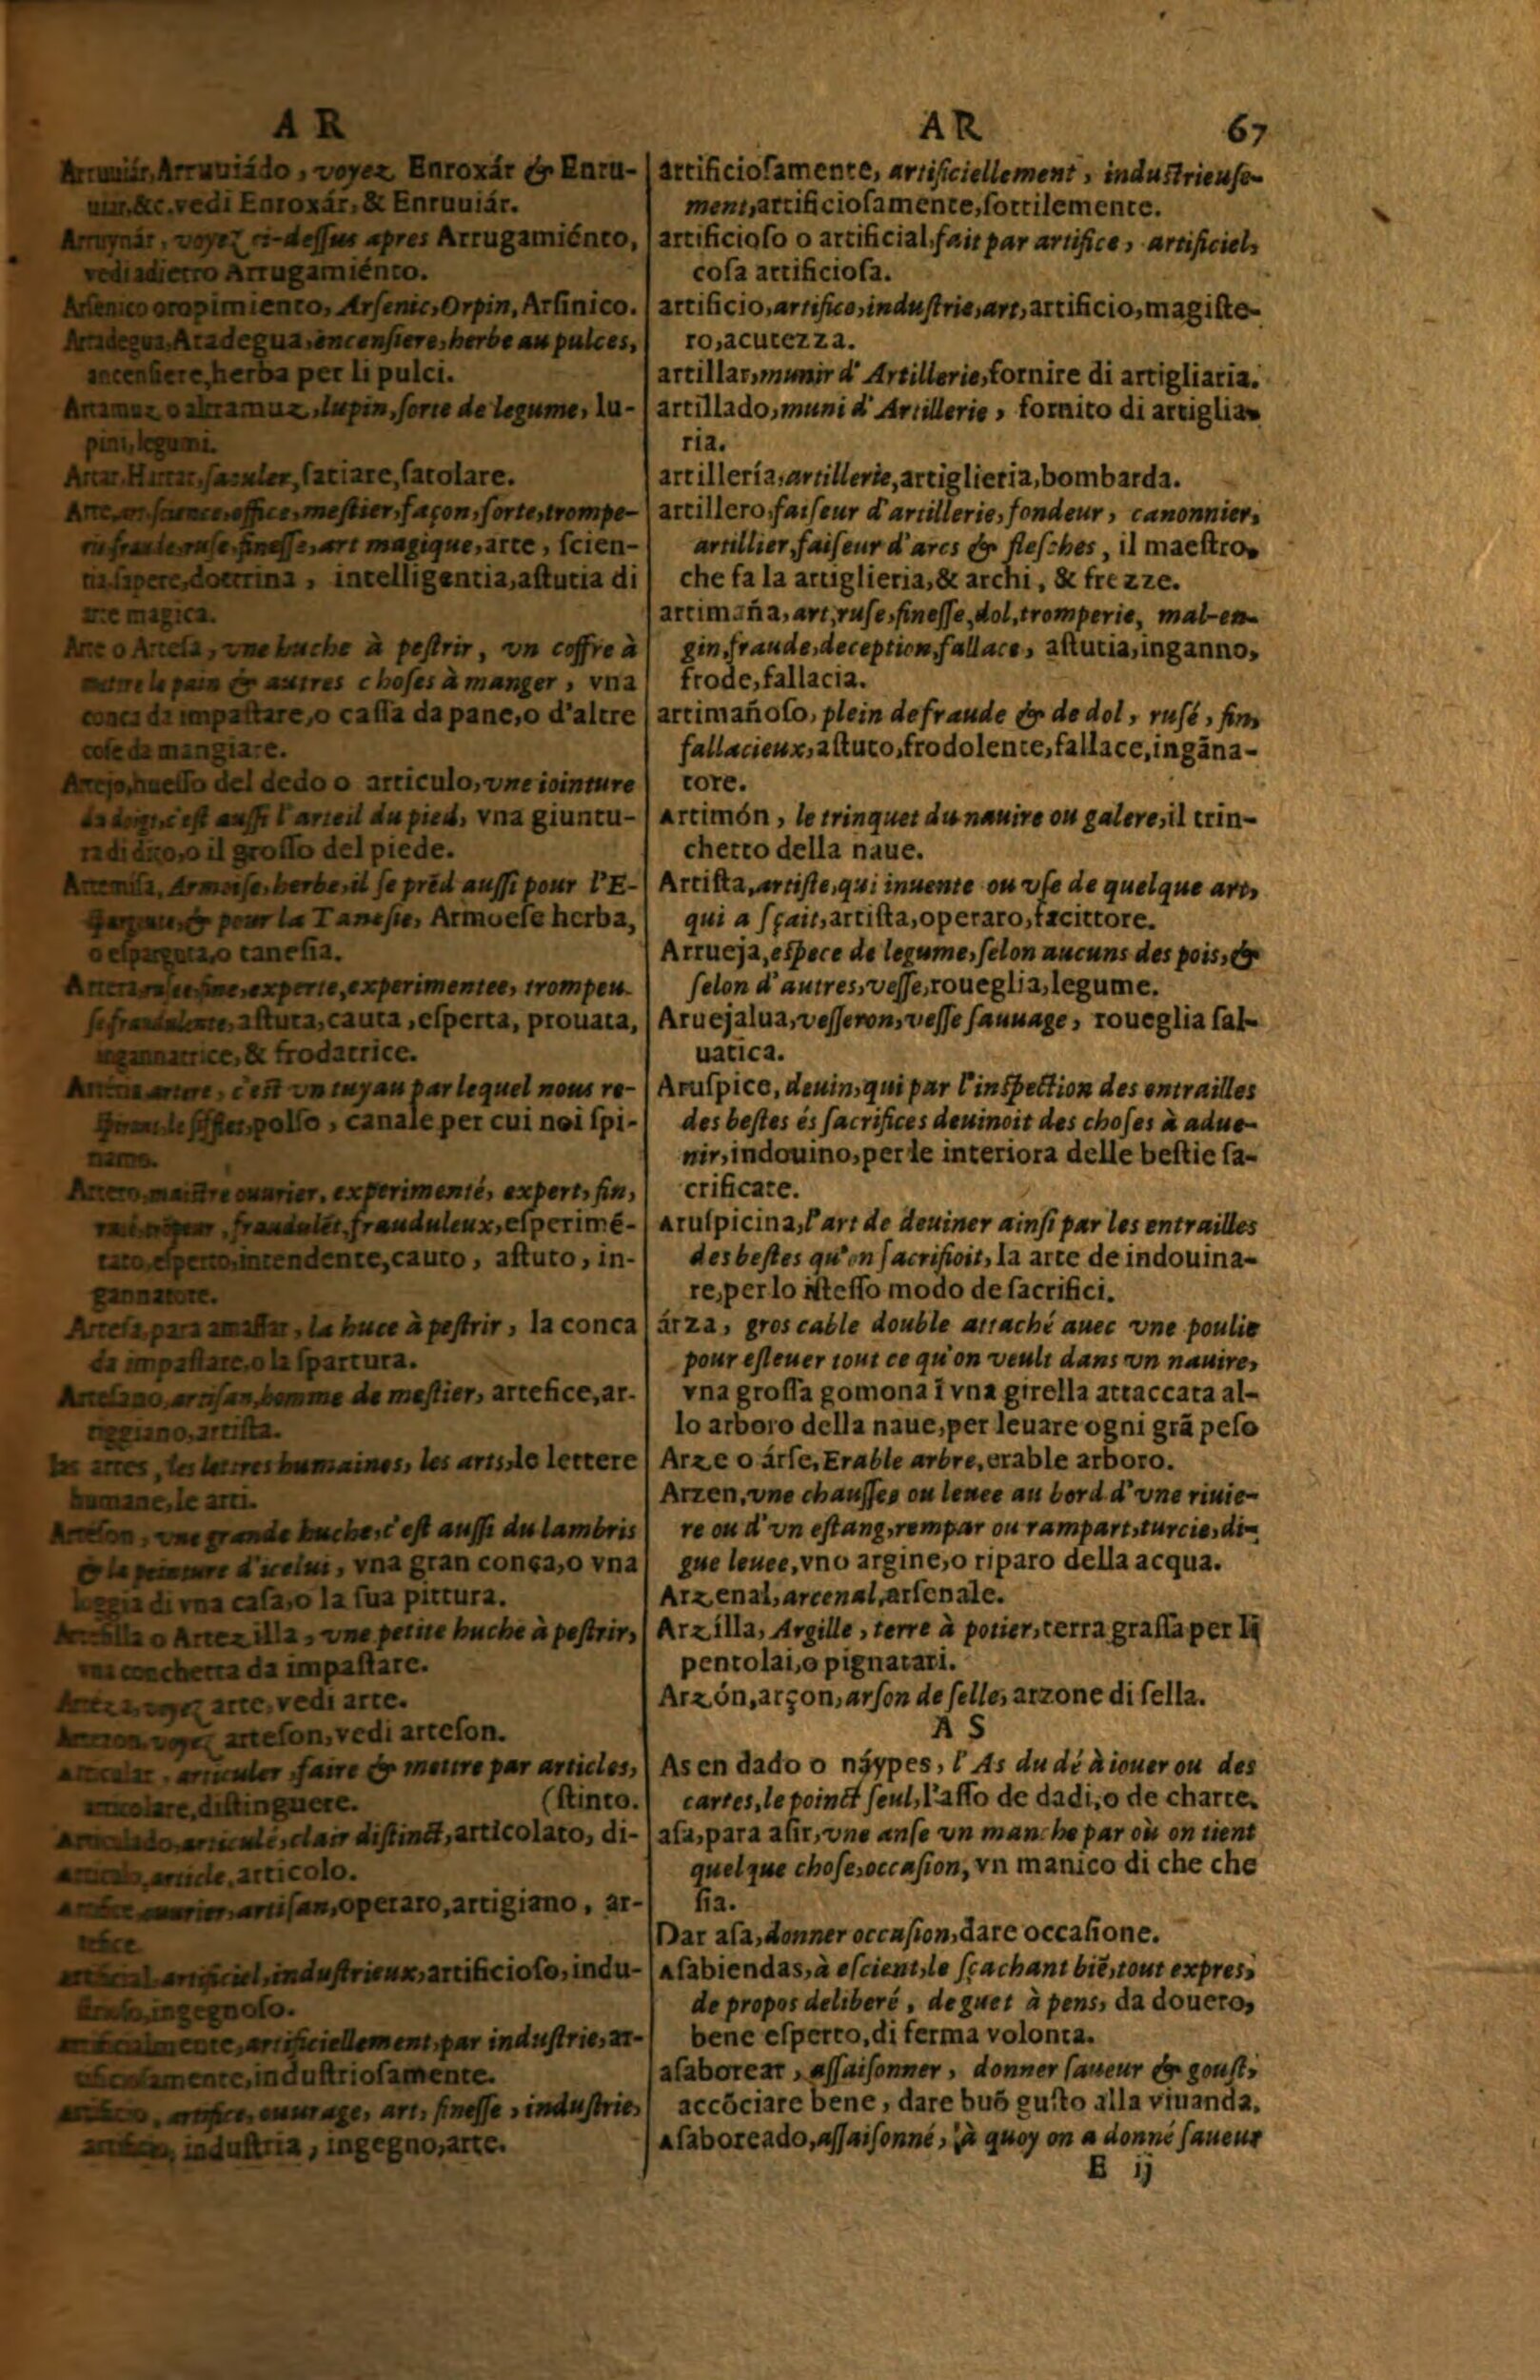 A R
Arruuiár, Arruuiádo, voyez Enroxár & Enru-
uiar, &c. vedi Enroxár, & Enruuiár.
Arruynár, voyez ci-deſſus apres Arrugamiénto,
vedi adietro Arrugamiénto.
Arſenico oropimiento, Arſenic, Orpin, Arſinico.
Artadegua, Atadegua, encenſiere, herbe au pulces,
ancenſiere, herba per li pulci.
Artamuz o altramuz, lupin, ſorte de legume, lu-
pini, legumi.
Artar, Hartar, ſaouler, ſatiare, ſatolare.
Arte, art, ſcience, office, meſtier, façon, ſorte, trompe-
rie, fraude, ruſe, fineſſe, art magique, arte, ſcien-
tia, ſapere, dottrina, intelligentia, aſtutia di
arte magica.
Arte o Arteſa, vne huche à peſtrir, vn coffre à
mettre le pain & autres choſes à manger, vna
conca da impaſtare, o caſſa da pane, o d'altre
coſe da mangiare.
Artejo, hueſſo del dedo o articulo, vne iointure
du doigt, c'eſt auſſi l'arteil du pied, vna giuntu-
ra di dito, o il groſſo del piede.
Artemiſa, Armoiſe, herbe, il ſe prẽd auſſi pour l'E-
ſpargoute, & pour la Taneſie, Armoeſe herba,
o eſpargota, o taneſia.
Artera, ruſee, fine, experte, experimentee, trompeu-
ſe, fraudulente, aſtuta, cauta, eſperta, prouata,
ingannatrice, & frodatrice.
Artéria, artere, c'eſt vn tuyau par lequel nous re-
ſpirons, le ſifflet, polſo, canale per cui noi ſpi-
namo.
Artero, maiſtre ouurier, experimenté, expert, fin,
fraudulẽt, frauduleux, eſperimẽ-
tato, eſperto, intendente, cauto, aſtuto, in-
gannatore.
Arteſa, para amaſſar, la huce à peſtrir, la conca
da impaſtare, o la ſpartura.
Arteſano, artiſan, homme de meſtier, artefice, ar-
tiggiano, artiſta.
las artes, les lettres humaines, les arts, le lettere
humane, le arti.
Arteſon, vne grande huche, c'eſt auſſi du lambris
& la peinture d'icelui, vna gran conça, o vna
loggia di vna caſa, o la ſua pittura.
Arteſilla o Artezilla, vne petite huche à peſtrir,
vna conchetta da impaſtare.
Arteza, voyez arte, vedi arte.
Artezon, voyez arteſon, vedi arteſon.
Articular, articuler, faire & mettre par articles,
articolare, diſtinguere. (ſtinto.
Articulado, articulé, clair diſtinct, articolato, di-
articulo, article, articolo.
artifice, ouurier, artiſan, operaro, artigiano, ar-
tefice
artificial, artificiel, induſtrieux, artificioſo, indu-
ſtrioſo, ingegnoſo.
artificialmente, artificiellement, par induſtrie, ar-
tificioſamente, induſtrioſamente.
artificio, artifice, ouurage, art, fineſſe, induſtrie,
artificio, induſtria, ingegno, arte.
A R 67
artificioſamente, artificiellement, induſtrieuſe-
ment, artificioſamente, ſottilemente.
artificioſo o artificial, fait par artifice, artificiel,
coſa artificioſa.
artificio, artifice, induſtrie, art, artificio, magiſte-
ro, acutezza.
artillar, munir d'Artillerie, fornire di artigliaria.
artillado, muni d'Artillerie, fornito di artiglia-
ria.
artillería, artillerie, artiglieria, bombarda.
artillero, faiſeur d'artillerie, fondeur, canonnier,
artillier, faiſeur d'arcs & fleſches, il maeſtro,
che fa la artiglieria, & archi, & frezze.
artimaña, art, ruſe, fineſſe, dol, tromperie, mal-en-
gin, fraude, deception, fallace, aſtutia, inganno,
frode, fallacia.
artimañoſo, plein de fraude & de dol, ruſé, fin,
fallacieux, aſtuto, frodolente, fallace, ingãna-
tore.
Artimón, le trinquet du nauire ou galere, il trin-
chetto della naue.
Artiſta, artiſte, qui inuente ou vſe de quelque art,
qui a ſçait, artiſta, operaro, facittore.
Arrueja, eſpece de legume, ſelon aucuns des pois, &
ſelon d'autres, veſſe, roueglia, legume.
Aruejalua, veſſeron, veſſe ſauuage, roueglia ſal-
uatica.
Aruſpice, deuin, qui par l'inſpection des entrailles
des beſtes és ſacrifices deuinoit des choſes à adue-
nir, indouino, per le interiora delle beſtie ſa-
crificate.
Aruſpicina, l'art de deuiner ainſi par les entrailles
des beſtes qu'on ſacrifioit, la arte de indouina-
re, per lo iſteſſo modo de ſacrifici.
árza, gros cable double attaché auec vne poulie
pour eſleuer tout ce qu'on veult dans vn nauire,
vna groſſa gomona ĩ vna girella attaccata al-
lo arboro della naue, per leuare ogni grã peſo
Arze o árſe, Erable arbre, erable arboro.
Arzen, vne chauſſee ou leuee au bord d'vne riuie-
re ou d'vn eſtang, rempar ou rampart, turcie, di-
gue leuee, vno argine, o riparo della acqua.
Arzenal, arcenal, arſenale.
Arzilla, Argille, terre à potier, terra graſſa per li
pentolai, o pignatari.
Arzón, arçon, arſon de ſelle, arzone di ſella.
A S
As en dado o náypes, l'As du dé à iouer ou des
cartes, le poinct ſeul, l'aſſo de dadi, o de charte.
aſa, para aſir, vne anſe vn manche par où on tient
quelque choſe, occaſion, vn manico di che che
ſia.
Dar aſa, donner occaſion, dare occaſione.
Aſabiendas, à eſcient, le ſçachant biẽ, tout expres,
de propos deliberé, de guet à pens, da douero,
bene eſperto, di ferma volonta.
aſaborear, aſſaiſonner, donner ſaueur & gouſt,
accõciare bene, dare buõ guſto alla viuanda.
Aſaboreado, aſſaiſonné, à quoy on a donné ſaueur
E ij